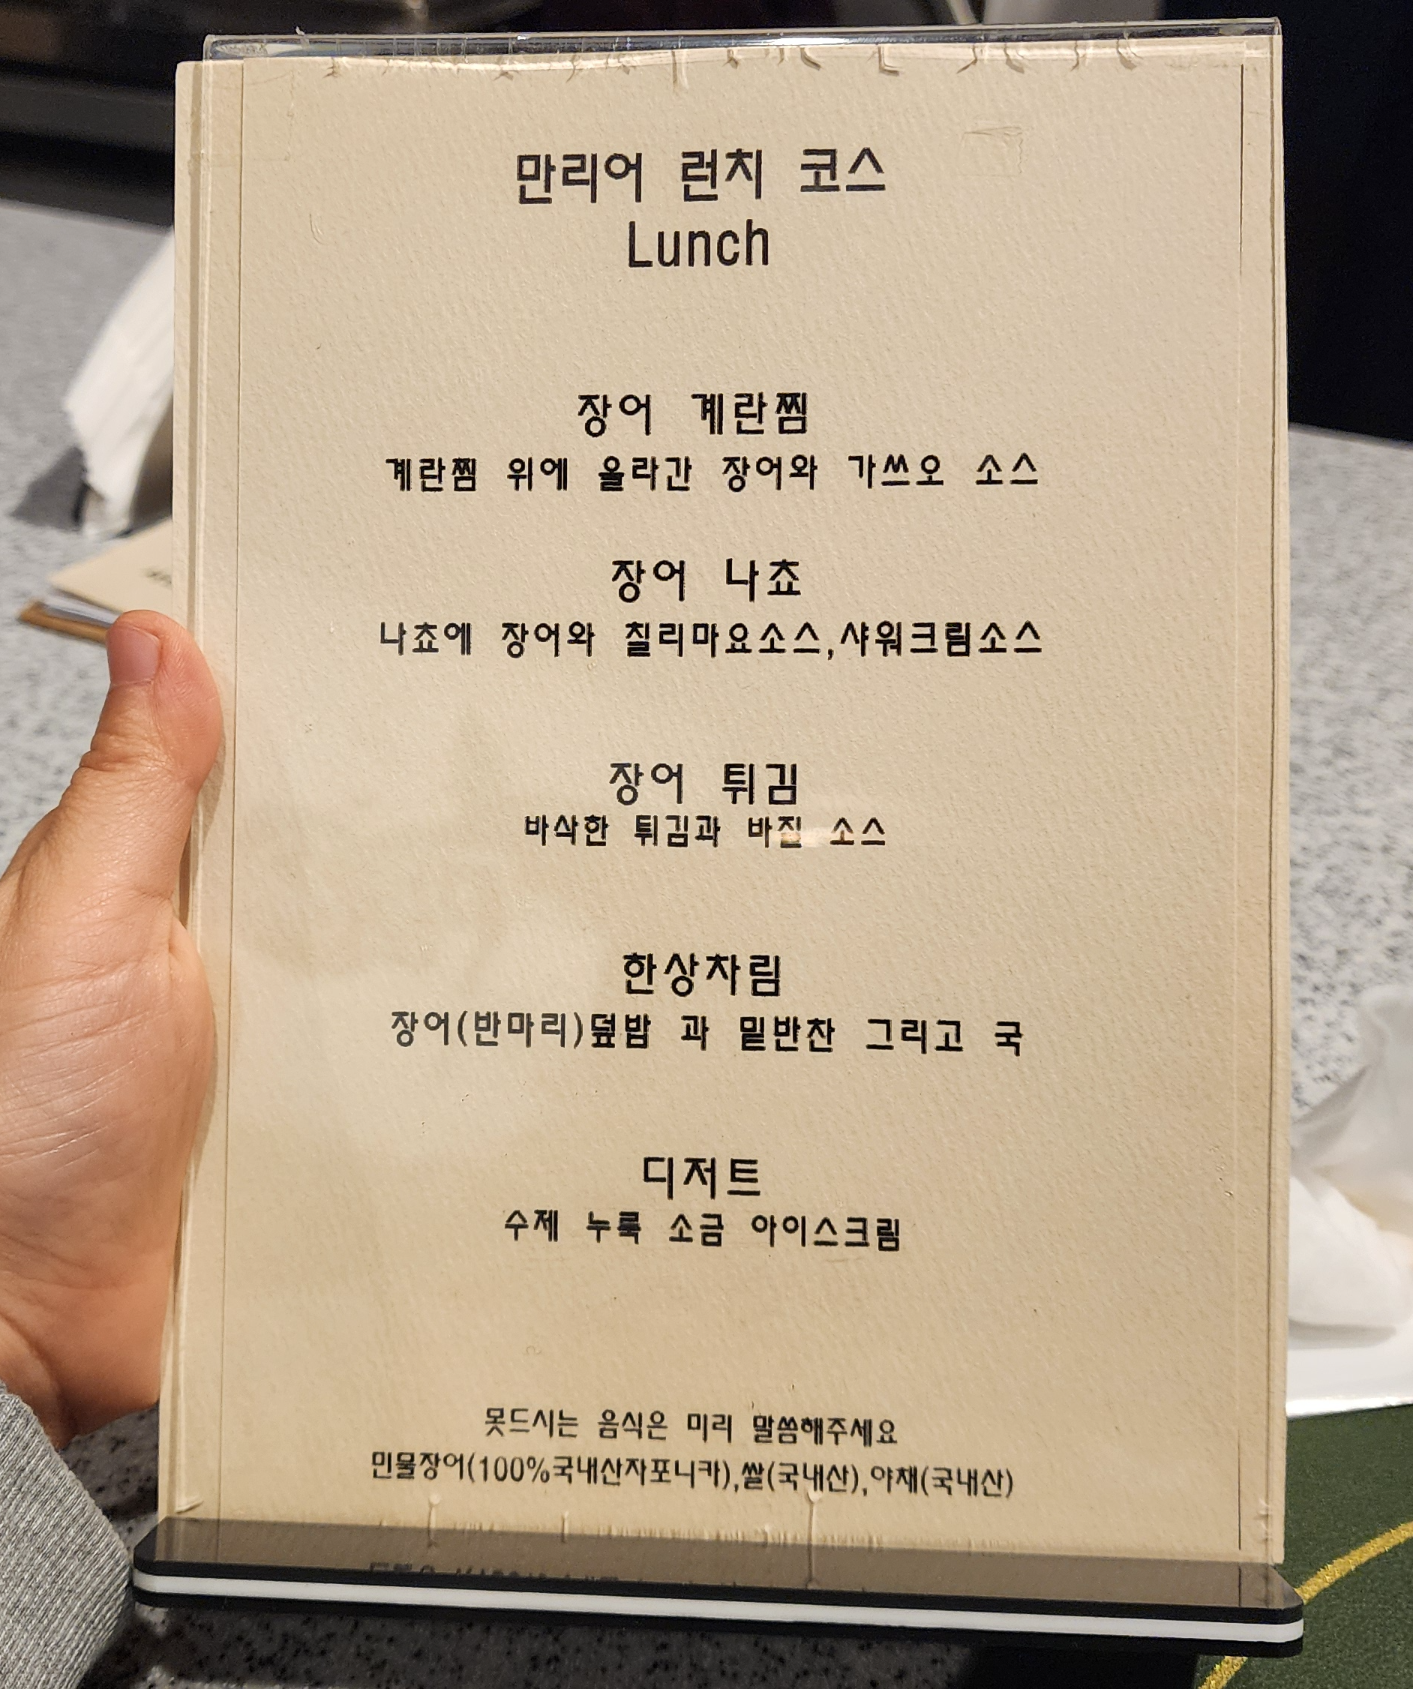 만리어 런치 코스
Lunch
장어 계란찜
계란찜 위에 올라간 장어와 가쓰오 소스
장어 나쵸
나쵸에 장어와 칠리마요소스,샤워크림소스
장어 튀김
바삭한 튀김과 바질 소스
한상차림
장어(반마리)덮밥 과 밑반찬 그리고 국
디저트
수제 누룩 소금 아이스크림
못드시는 음식은 미리 말씀해주세요
민물장어(100%국내산자포니카),쌀(국내산),야채(국내산)